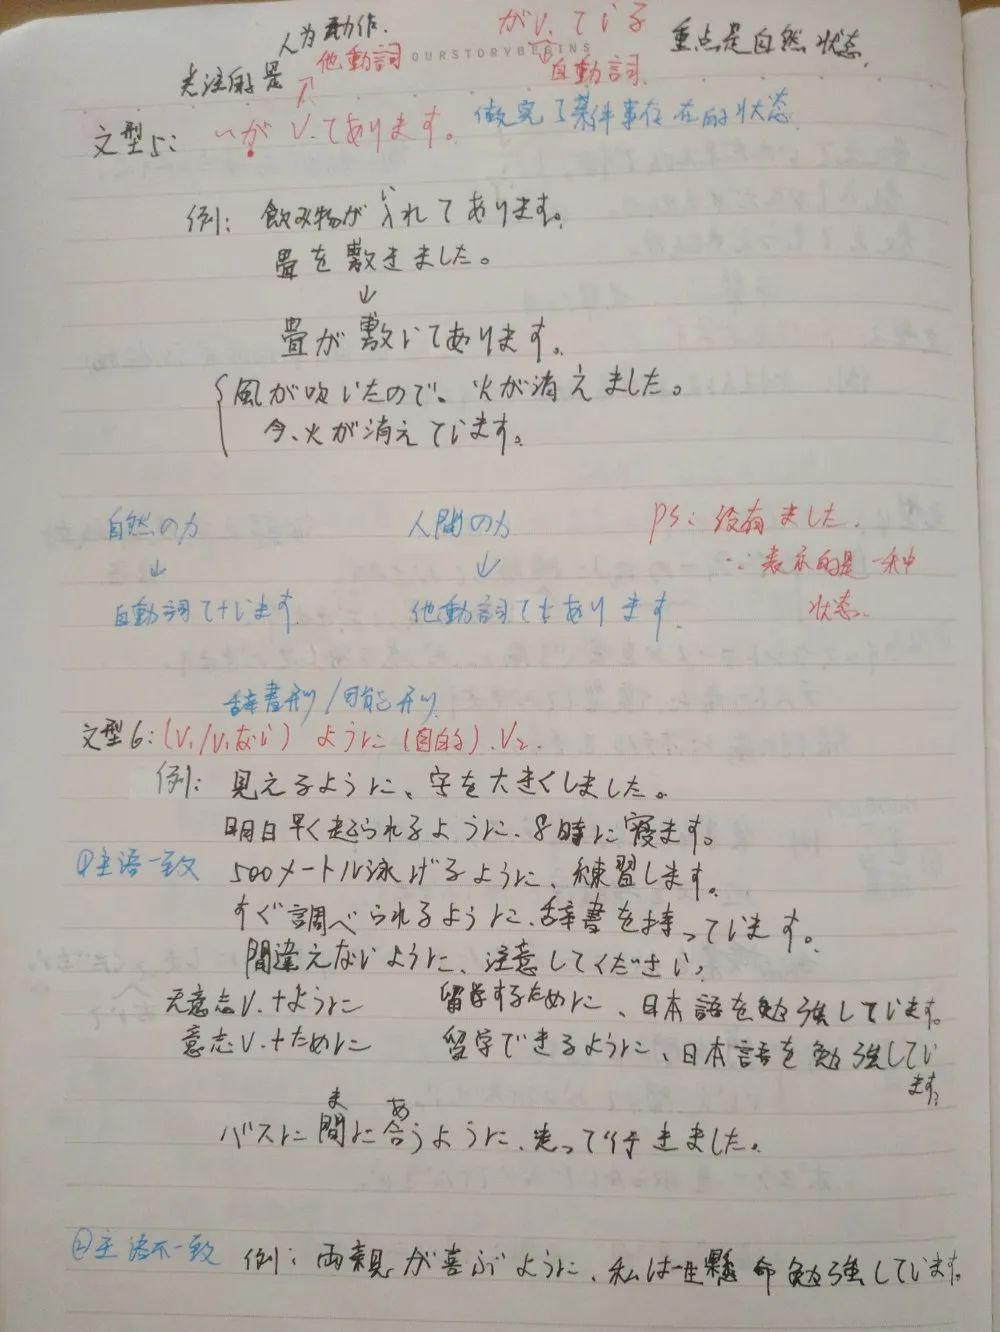 人为動作.
がV.ている
重点是自然状态.
关注的是
他動詞
OURSTORYBEGINS
自動詞.
文型5: ～がV.てあります。
做完了某件事存在的状态
例: 飲み物が入れてあります。
い
畳を敷きました。
↓
畳が敷いてあります。
風が吹いたので、火が消えました。
今、火が消えています。
自然の力 人間の力 PS: 没有ました.
↓ ↓ ∵表示的是一种
自動詞て+います. 他動詞て+あります. 状态.
辞書形/可能形
文型6: (V₁/V₁ない) ように(目的).V₂.
例: 見えるように、字を大きくしました。
明日早く起られるように、8時に寝ます。
①主语一致 500メートル泳げるように、練習します。
すぐ調べられるように、辞書を持っています。
間違えないように、注意してください。
无意志V.+ように 留学するために、日本語を勉強しています。
意志V.+ために 留学できるように、日本語を勉強してい
ます。
ま あ
バスに間に合うように、走って行きました。
②主语不一致 例: 両親が喜ぶように、私は一生懸命勉強しています。